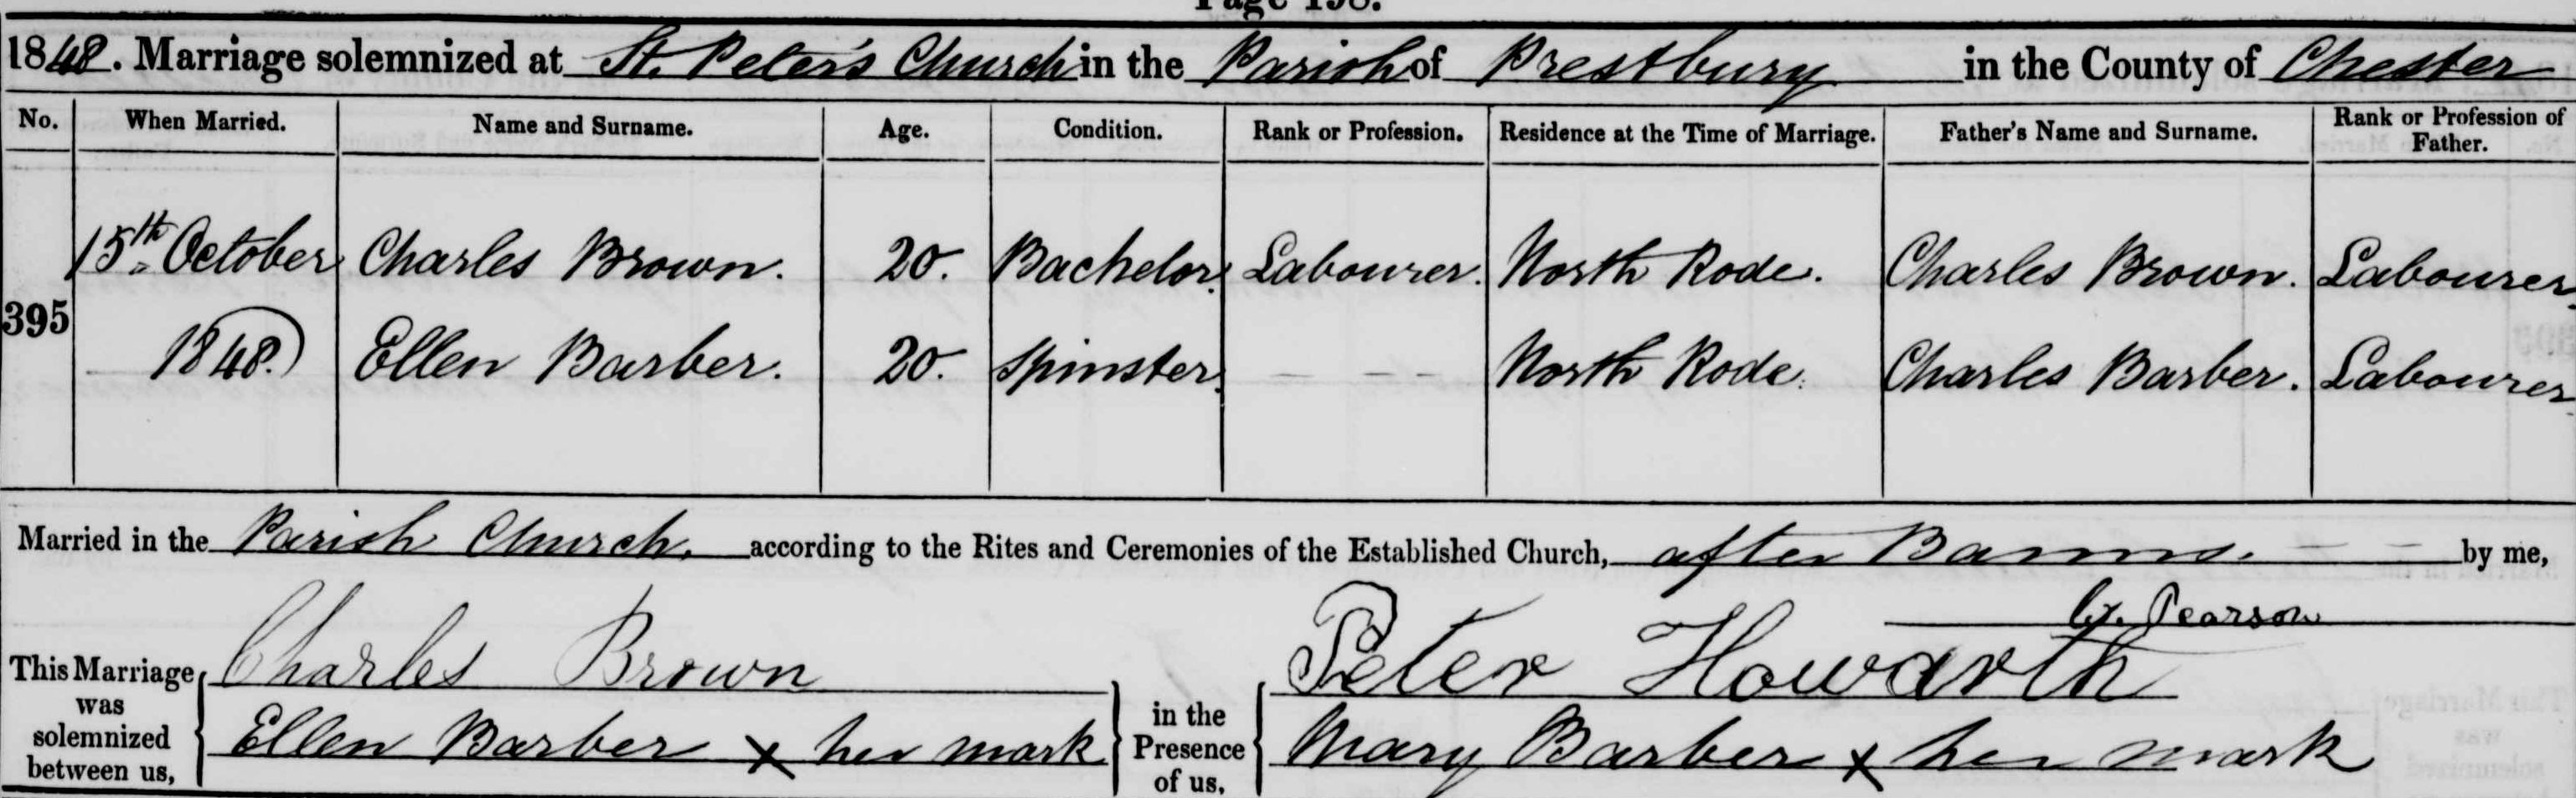 Page 198.
1848. Marriage solemnized at St. Peter's Church in the Parish of Prestbury in the County of Chester
No. When Married. Name and Surname. Age. Condition. Rank or Profession. Residence at the Time of Marriage. Father's Name and Surname. Rank or Profession of Father.
15th October Charles Brown. 20. Bachelor. Labourer. North Rode. Charles Brown. Labourer
395
1848. Ellen Barber. 20. Spinster. - - - North Rode. Charles Barber. Labourer
Married in the Parish Church. according to the Rites and Ceremonies of the Established Church, after Banns. by me,
Pearson
This Marriage was solemnized between us,
Charles Brown
Ellen Barber x her mark
in the Presence of us,
Peter Howarth
Mary Barber x her mark